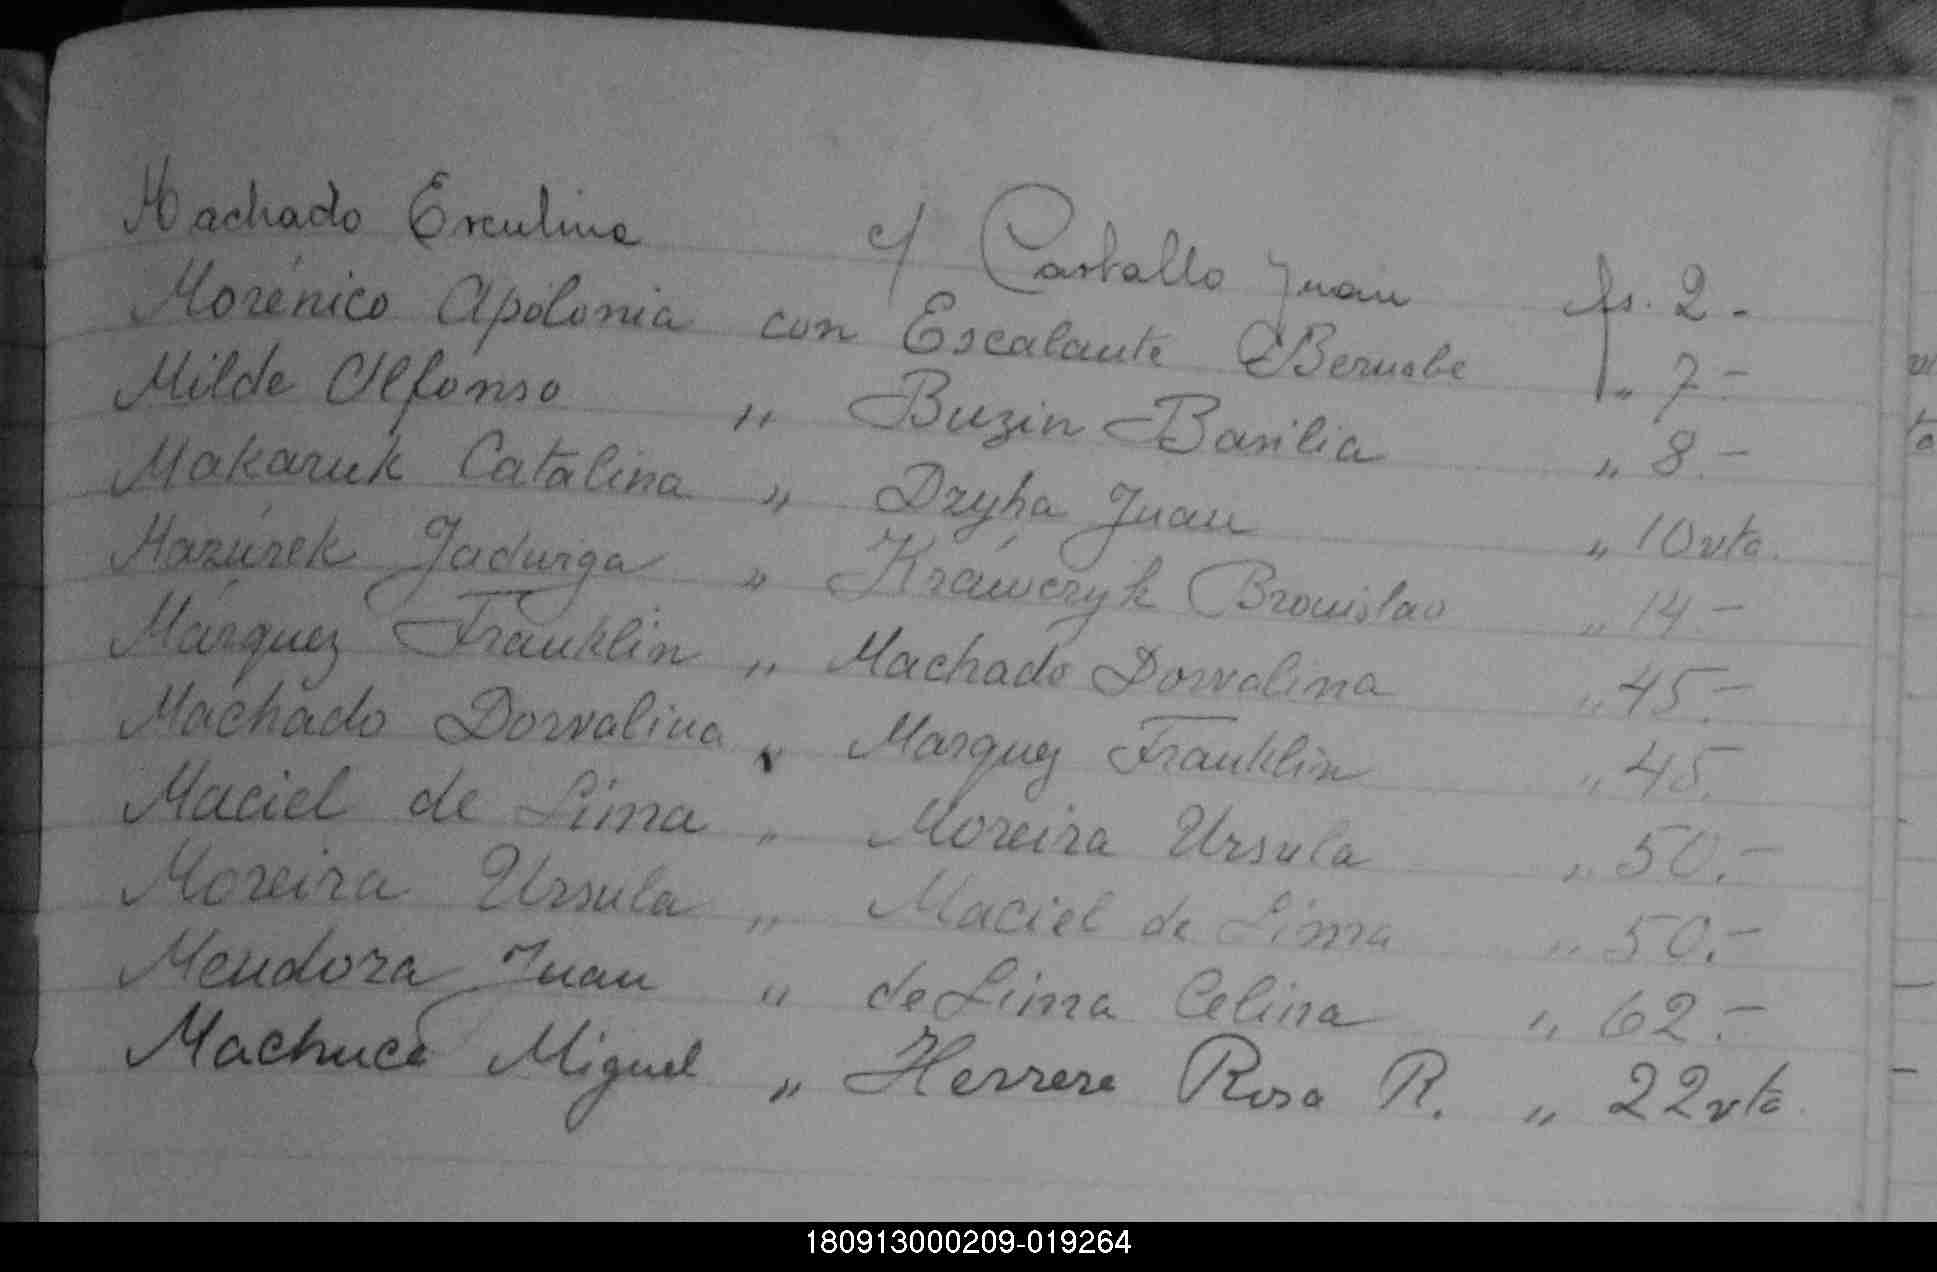 Machado Erculina c/ Carballo Juan fs. 2.-
Morénico Apolonia con Escalante Bernabe " 7.-
Milde Alfonso " Buzin Basilia " 8.-
Makaruk Catalina " Dzyha Juan " 10 vta.
Mazúrek Jadwiga " Kráwczyk Bronislao " 14.-
Márquez Franklin " Machado Dorvalina " 45.-
Machado Dorvalina " Marquez Franklin " 45.-
Maciel de Lima " Moreira Ursula " 50.-
Moreira Ursula " Maciel de Lima " 50.-
Mendoza Juan " de Lima Celina " 62.-
Machuca Miguel " Herrera Rosa R. " 22 vta.
180913000209-019264